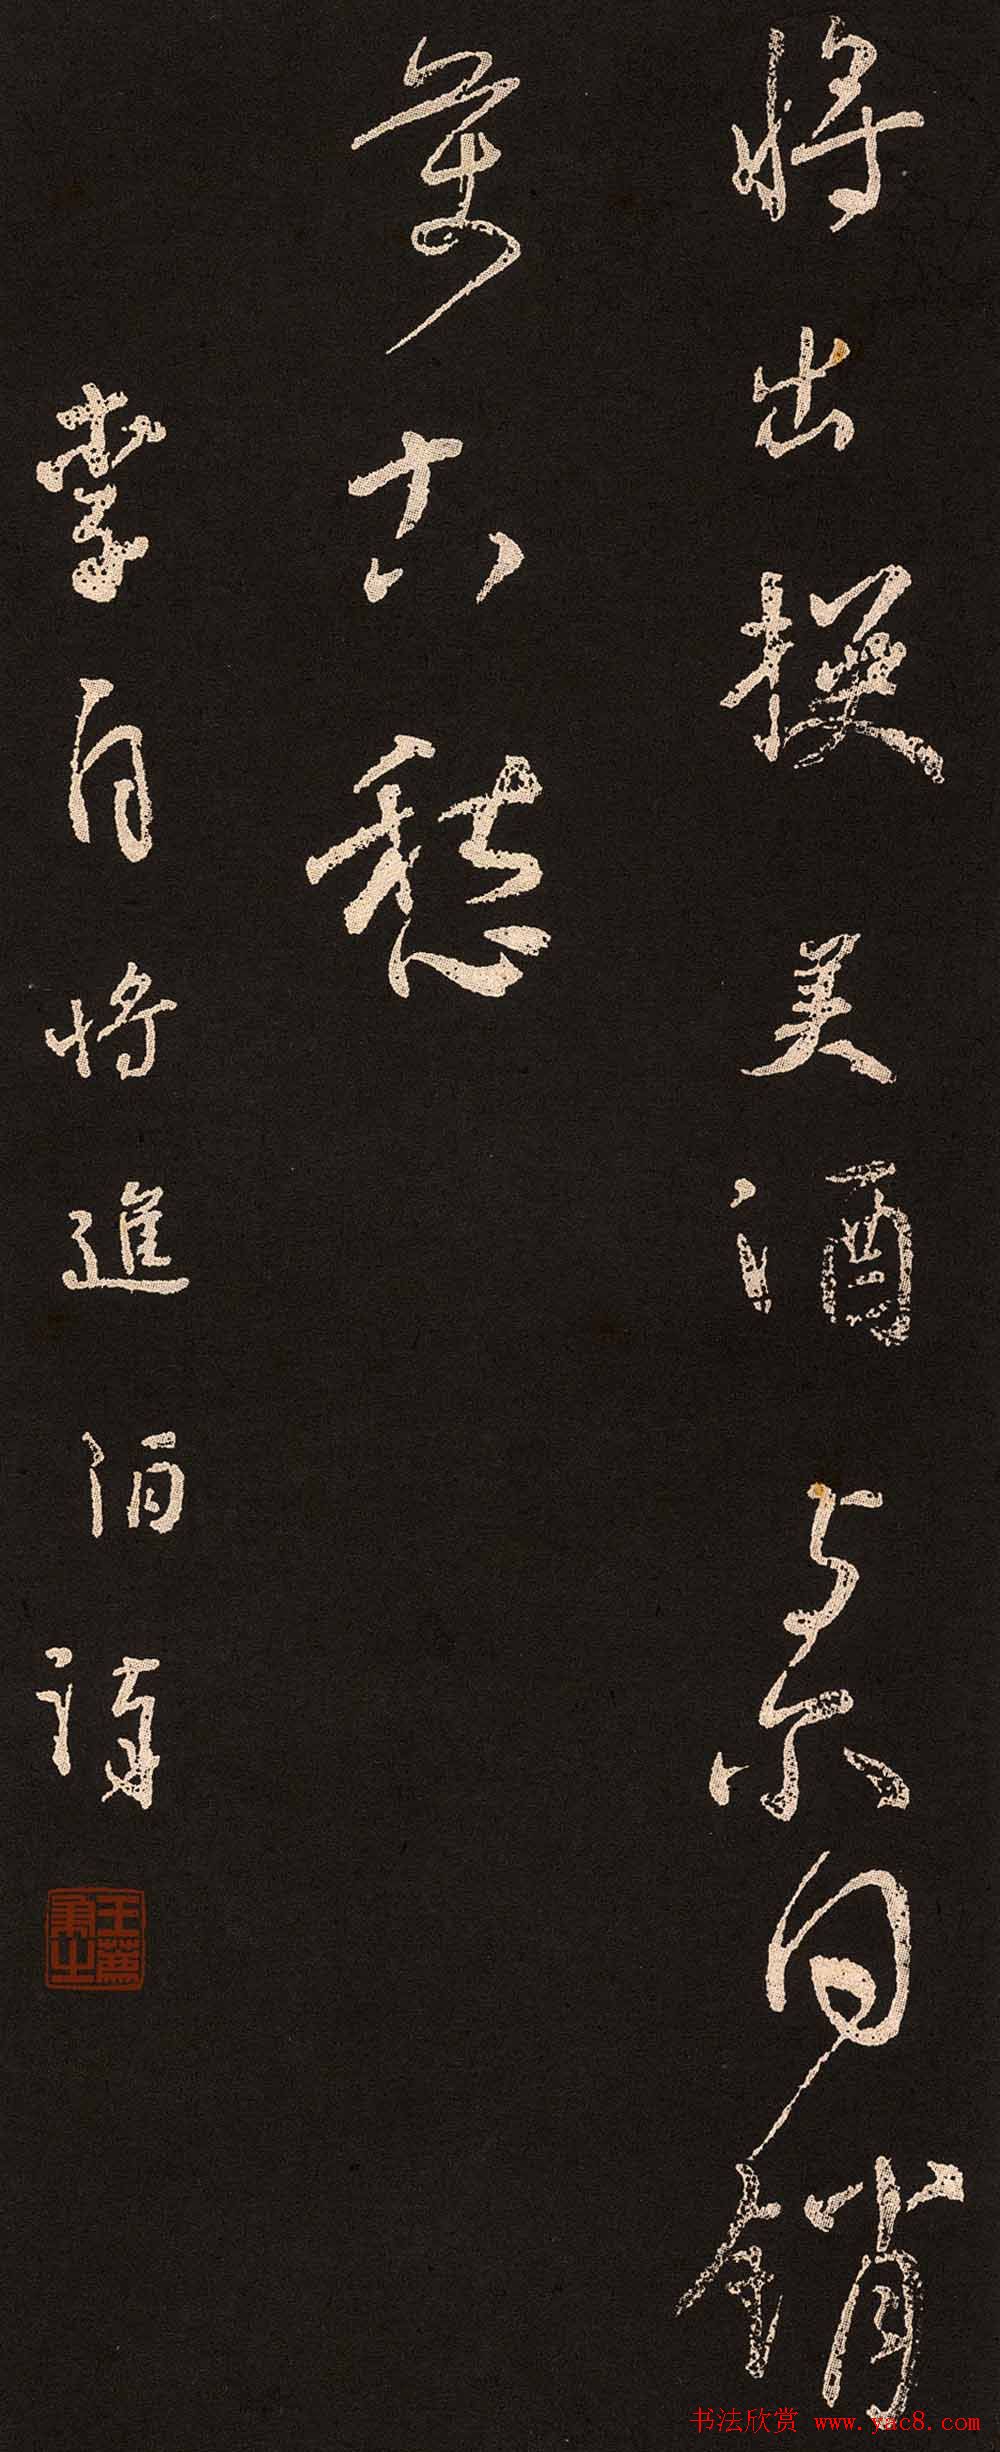 將出換美酒与尔同銷
萬古愁
李白將進酒詩
书法欣赏 www.yac8.com